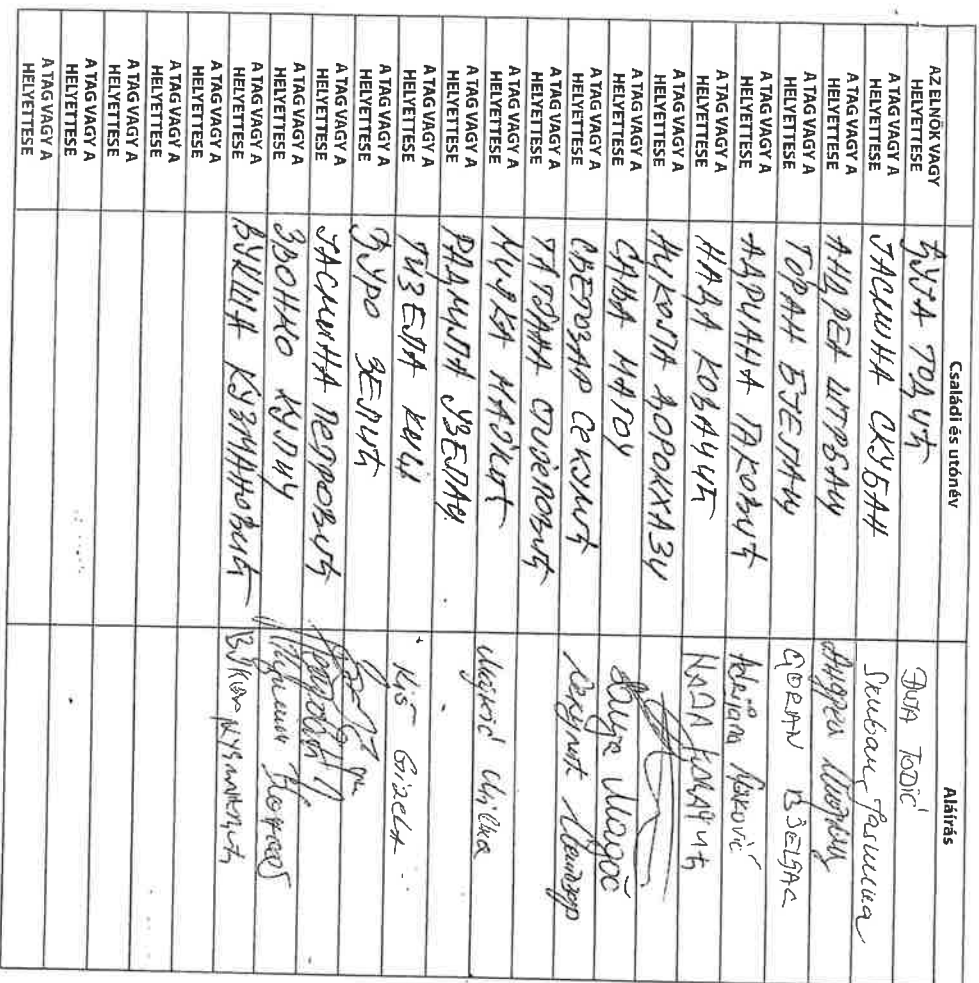 Családi és utónév Aláírás
AZ ELNÖK VAGY
HELYETTESE ЂУЈА ТОДИЋ ЂUJA TODIĆ
A TAG VAGY A
HELYETTESE ЈАСМИНА СКУБАН Skuban Jasmina
A TAG VAGY A
HELYETTESE АНДРЕА ШТРБАЦ Андреа
A TAG VAGY A
HELYETTESE ГОРАН БЈЕЛАЦ GORAN
A TAG VAGY A
HELYETTESE АДРИАНА ЂАКОВИЋ Adrijana
A TAG VAGY A
HELYETTESE НАДА КОВАЧИЋ NADA
A TAG VAGY A
HELYETTESE НИКОЛА ДОРОКХАЗИ
A TAG VAGY A
HELYETTESE САВА МАГОЧ
A TAG VAGY A
HELYETTESE СВЕТОЗАР СЕКУЛИЋ Секулић
A TAG VAGY A
HELYETTESE ТАТЈАНА СТИЈЕПОВИЋ
A TAG VAGY A
HELYETTESE МИЛКА МАЈКИЋ Majkić Milka
A TAG VAGY A
HELYETTESE РАДМИЛА УЗЕЛАЦ
A TAG VAGY A
HELYETTESE ГИЗЕЛА КИШ Kiš Gizela
A TAG VAGY A
HELYETTESE ЂУРО ЗЕЛИЋ
A TAG VAGY A
HELYETTESE ЈАСМИНА ПЕТРОВИЋ
A TAG VAGY A
HELYETTESE ЗВОНКО КУЛИЧ
A TAG VAGY A
HELYETTESE ВУКИЦА КУЗМАНОВИЋ
A TAG VAGY A
HELYETTESE
A TAG VAGY A
HELYETTESE
A TAG VAGY A
HELYETTESE
A TAG VAGY A
HELYETTESE
A TAG VAGY A
HELYETTESE